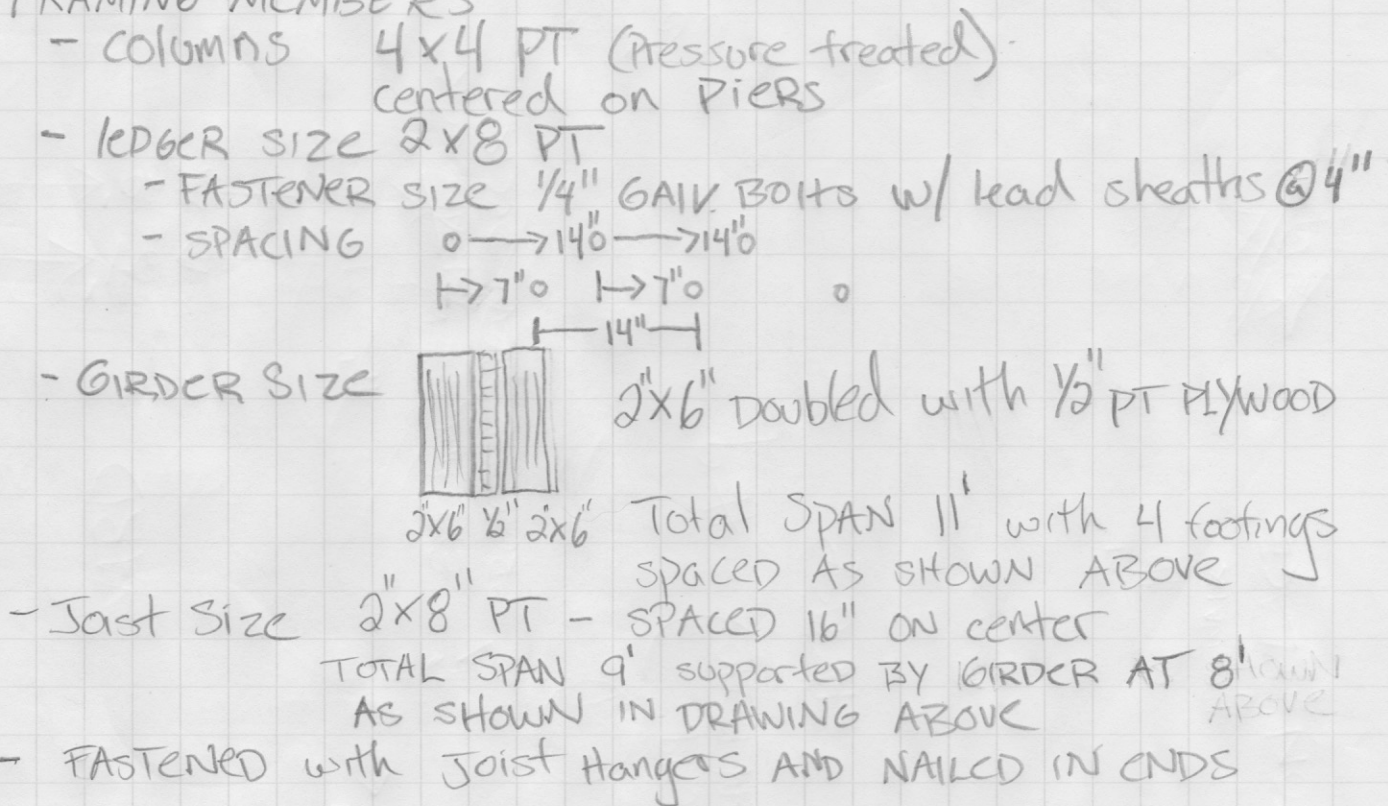 FRAMING MEMBERS
- Columns 4x4 PT (Pressure treated)
centered on PiERS
- lEDGER SIZE 2x8 PT
- FASTENER SIZE 1/4" GALV. BOLTS w/ lead sheaths @ 4"
- SPACING o→14"o→14"o
|→7"o |→7"o o
|—14"—|
- GIRDER SIZE 2"x6" DOUBLED with 1/2" PT PLYWOOD
2"x6" 1/2" 2"x6" Total SPAN 11' with 4 footings
SPACED AS SHOWN ABOVE
- Jast Size 2"x8" PT - SPACED 16" ON center
TOTAL SPAN 9' supported BY GIRDER AT 8'
AS SHOWN IN DRAWING ABOVE ABOVE
- FASTENED with Joist Hangers AND NAILED IN ENDS